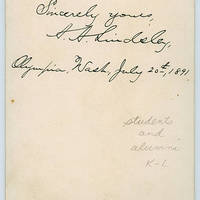 Sincerely yours,
A. A. Lindsley,
Olympia, Wash, July 20th, 1891.
students
and
alumni
K-L